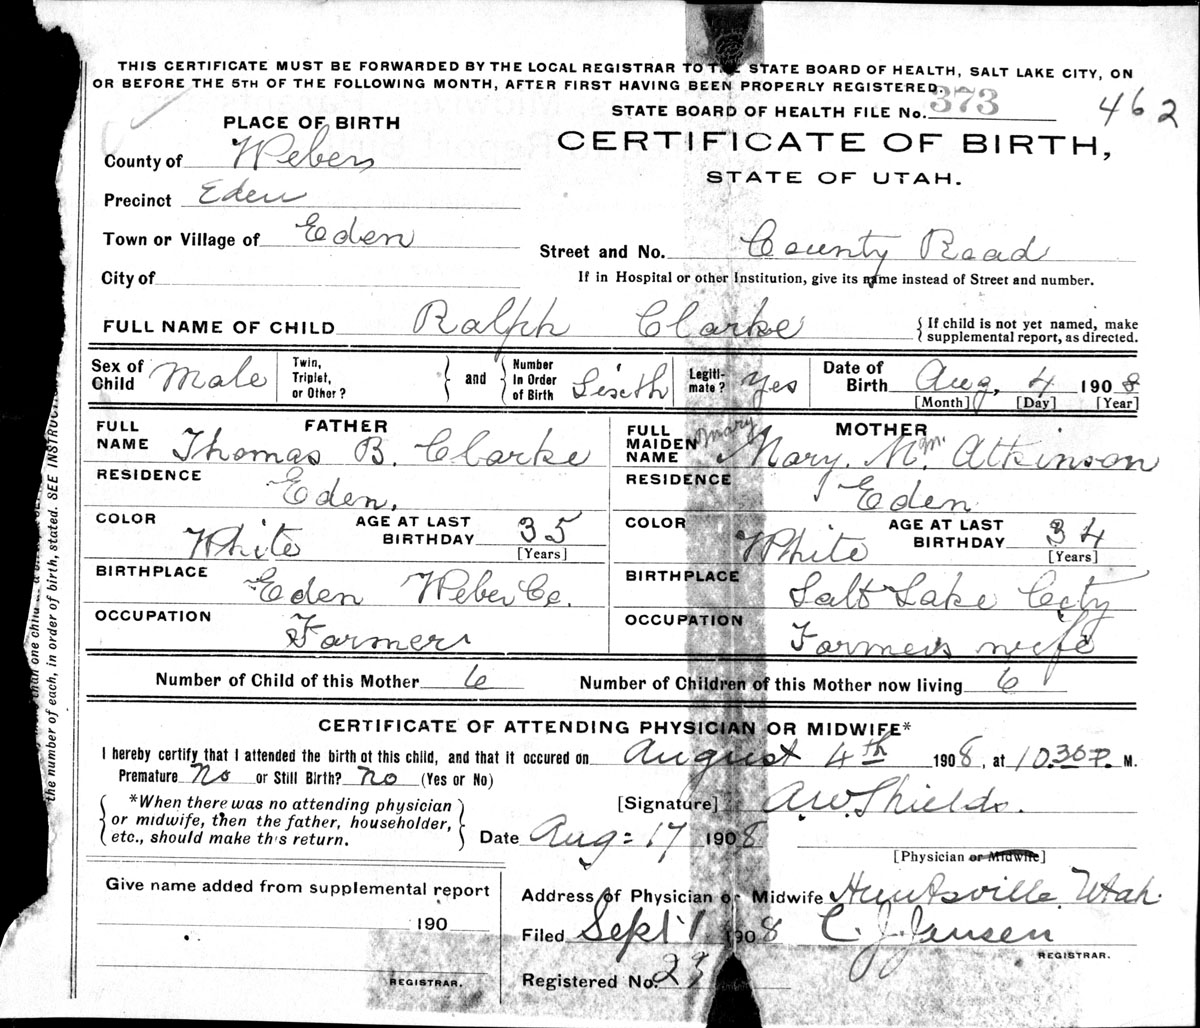 THIS CERTIFICATE MUST BE FORWARDED BY THE LOCAL REGISTRAR TO THE STATE BOARD OF HEALTH, SALT LAKE CITY, ON
OR BEFORE THE 5TH OF THE FOLLOWING MONTH, AFTER FIRST HAVING BEEN PROPERLY REGISTERED.
STATE BOARD OF HEALTH FILE No. 373
462
PLACE OF BIRTH
CERTIFICATE OF BIRTH,
STATE OF UTAH.
County of Weber
Precinct Eden
Town or Village of Eden
Street and No. County Road
City of
If in Hospital or other Institution, give its name instead of Street and number.
FULL NAME OF CHILD Ralph Clarke
{ If child is not yet named, make supplemental report, as directed.
Sex of Child Male
Twin, Triplet, or Other?
and
Number In Order of Birth Sixth
Legiti- mate? Yes
Date of Birth Aug, 4 1908
[Month] [Day] [Year]
FATHER
FULL NAME Thomas B. Clarke
MOTHER
FULL MAIDEN NAME Mary Mary. M gm. Atkinson
RESIDENCE Eden.
RESIDENCE Eden
COLOR White AGE AT LAST BIRTHDAY 35 [Years]
COLOR White AGE AT LAST BIRTHDAY 34 [Years]
BIRTHPLACE Eden Weber Co.
BIRTHPLACE Salt Lake City
OCCUPATION Farmer
OCCUPATION Farmers wife
Number of Child of this Mother 6 Number of Children of this Mother now living 6
CERTIFICATE OF ATTENDING PHYSICIAN OR MIDWIFE*
I hereby certify that I attended the birth of this child, and that it occured on August 4th 1908, at 10.30 P. M.
Premature No or Still Birth? No (Yes or No)
*When there was no attending physician
or midwife, then the father, householder,
etc., should make this return.
[Signature] A.W. Shields.
Date Aug = 17 1908
[Physician or Midwife]
Give name added from supplemental report
190
REGISTRAR.
Address of Physician or Midwife Huntsville, Utah.
Filed Sept 1 1908 C. J. Jensen
REGISTRAR.
Registered No. 23
the number of each, in order of birth, stated. SEE INSTRUC